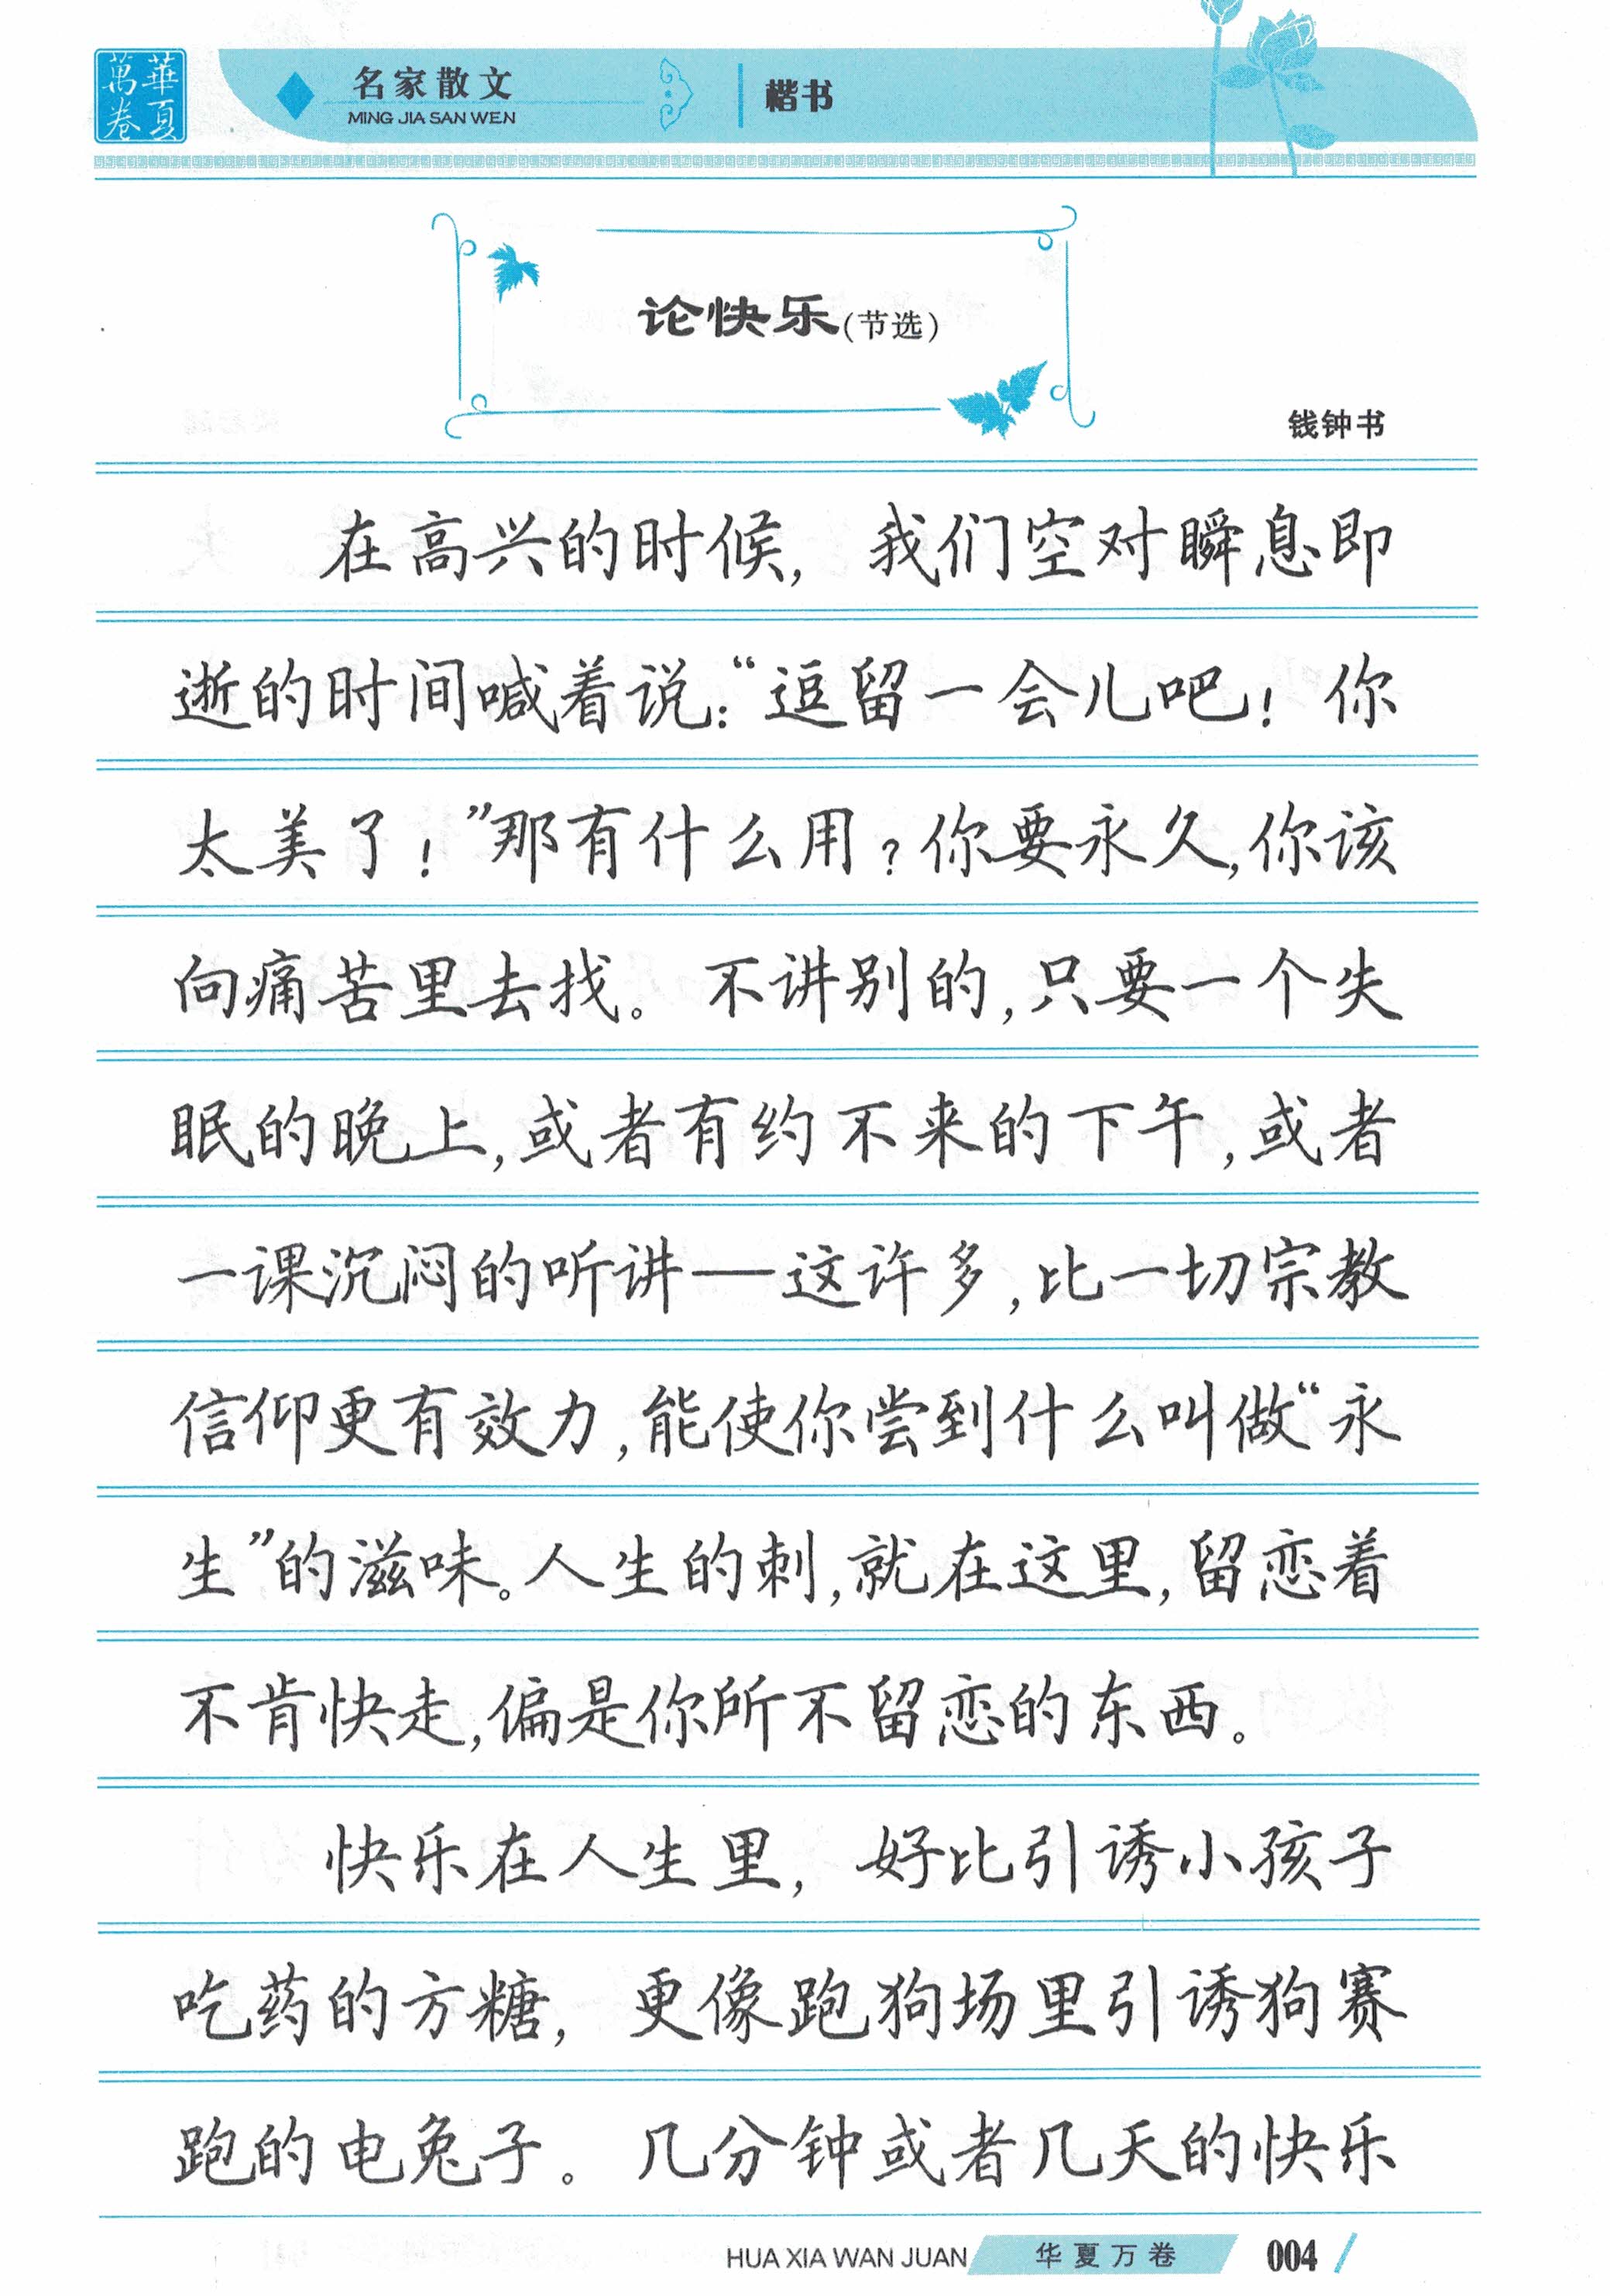 華夏
萬卷
名家散文
MING JIA SAN WEN
楷书
论快乐(节选)
钱钟书
在高兴的时候，我们空对瞬息即
逝的时间喊着说：“逗留一会儿吧！你
太美了！”那有什么用？你要永久，你该
向痛苦里去找。不讲别的，只要一个失
眠的晚上，或者有约不来的下午，或者
一课沉闷的听讲——这许多，比一切宗教
信仰更有效力，能使你尝到什么叫做“永
生”的滋味。人生的刺，就在这里，留恋着
不肯快走，偏是你所不留恋的东西。
快乐在人生里，好比引诱小孩子
吃药的方糖，更像跑狗场里引诱狗赛
跑的电兔子。几分钟或者几天的快乐
HUA XIA WAN JUAN 华夏万卷 004